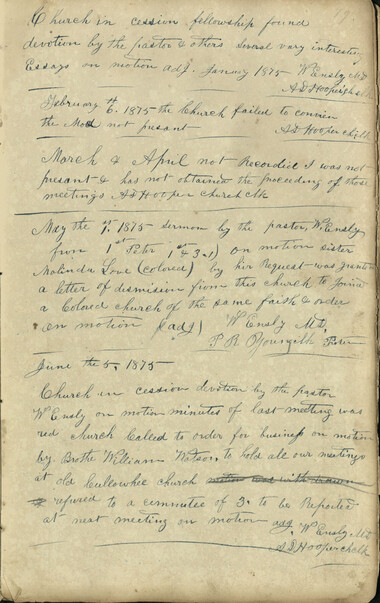 Church in cession fellowship found
devotion by the pastor & others several very interesting
Essays on motion adj. January 1875 W Ensly Md
A D Hooper ch clk
February the 6. 1875 the Church failed to convien
the Mod not presant A D Hooper ch clk
March & April not Recorded I was not
presant & has not obtained the proceding of those
meetings A D Hooper church clk
May the 1st. 1875 sermon by the pastor, W. Ensly
from 1st Peter 1st & 3-1) on motion sister
Malinda Love (colored) by hir request was granted
a letter of dismision from this church to joine
a Colored church of the same faith & order
on motion (adj) W Ensly Md,
P R Young clk Protem
June the 5, 1875
Church in cession devotion by the pastor
W Ensly on motion minutes of last meeting was
red church Called to order for business on motion
by Broth William Watson, to hold all our meetings
at old Cullowhee church motion was with drawn
refured to a committee of 3. to be Reported
at next meeting on motion adj. W Ensly Md
A D Hooper ch clk